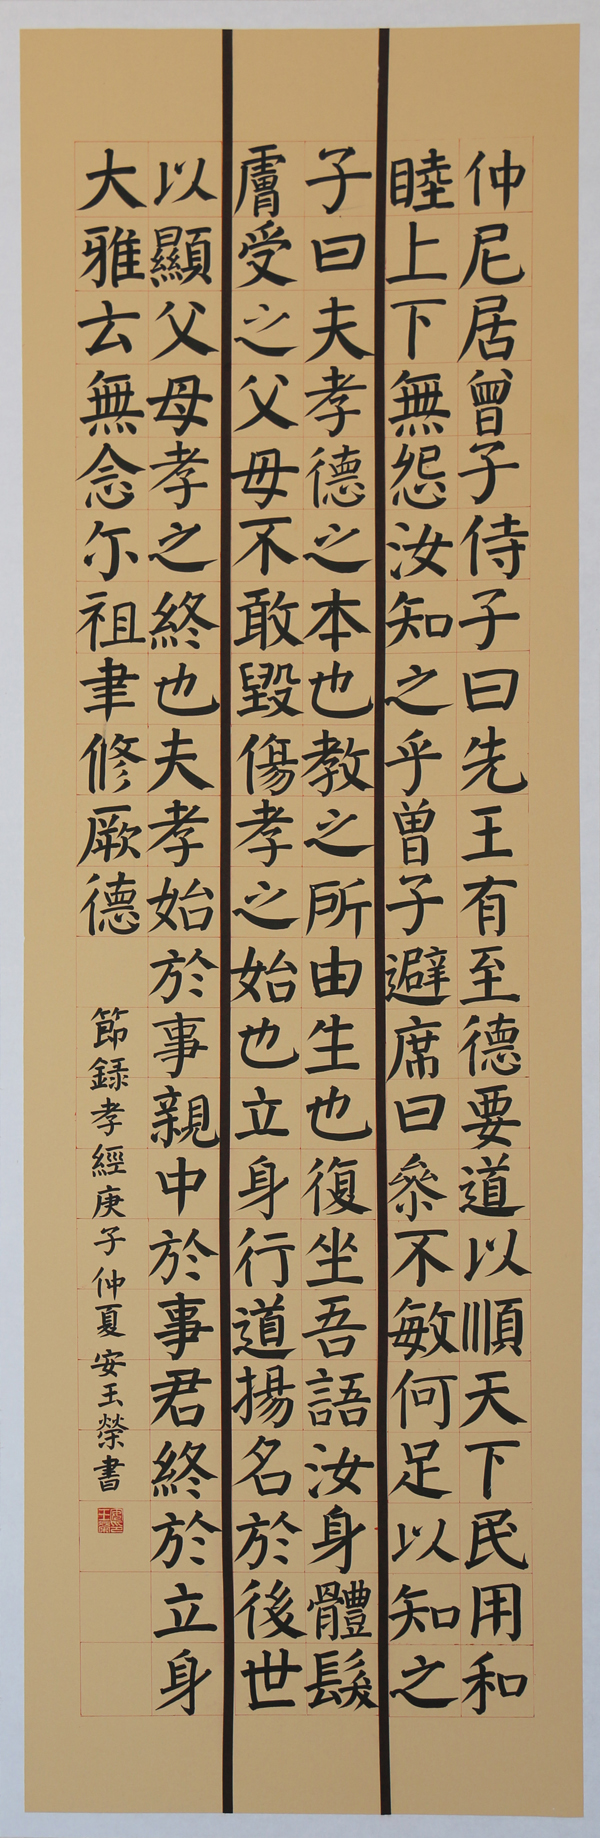 仲尼居曾子侍子曰先王有至德要道以順天下民用和
睦上下無怨汝知之乎曾子避席曰叅不敏何足以知之
子曰夫孝德之本也教之所由生也復坐吾語汝身體髮
膚受之父母不敢毀傷孝之始也立身行道揚名於後世
以顯父母孝之終也夫孝始於事親中於事君終於立身
大雅云無念尔祖聿修厥德
節録孝經庚子仲夏安玉榮書